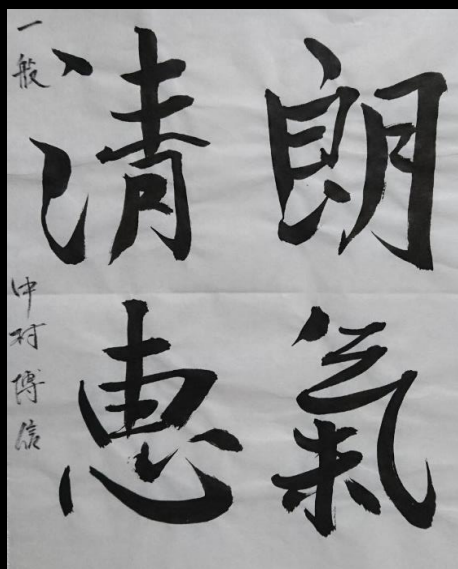 朗氣
清惠
一般 中村博信